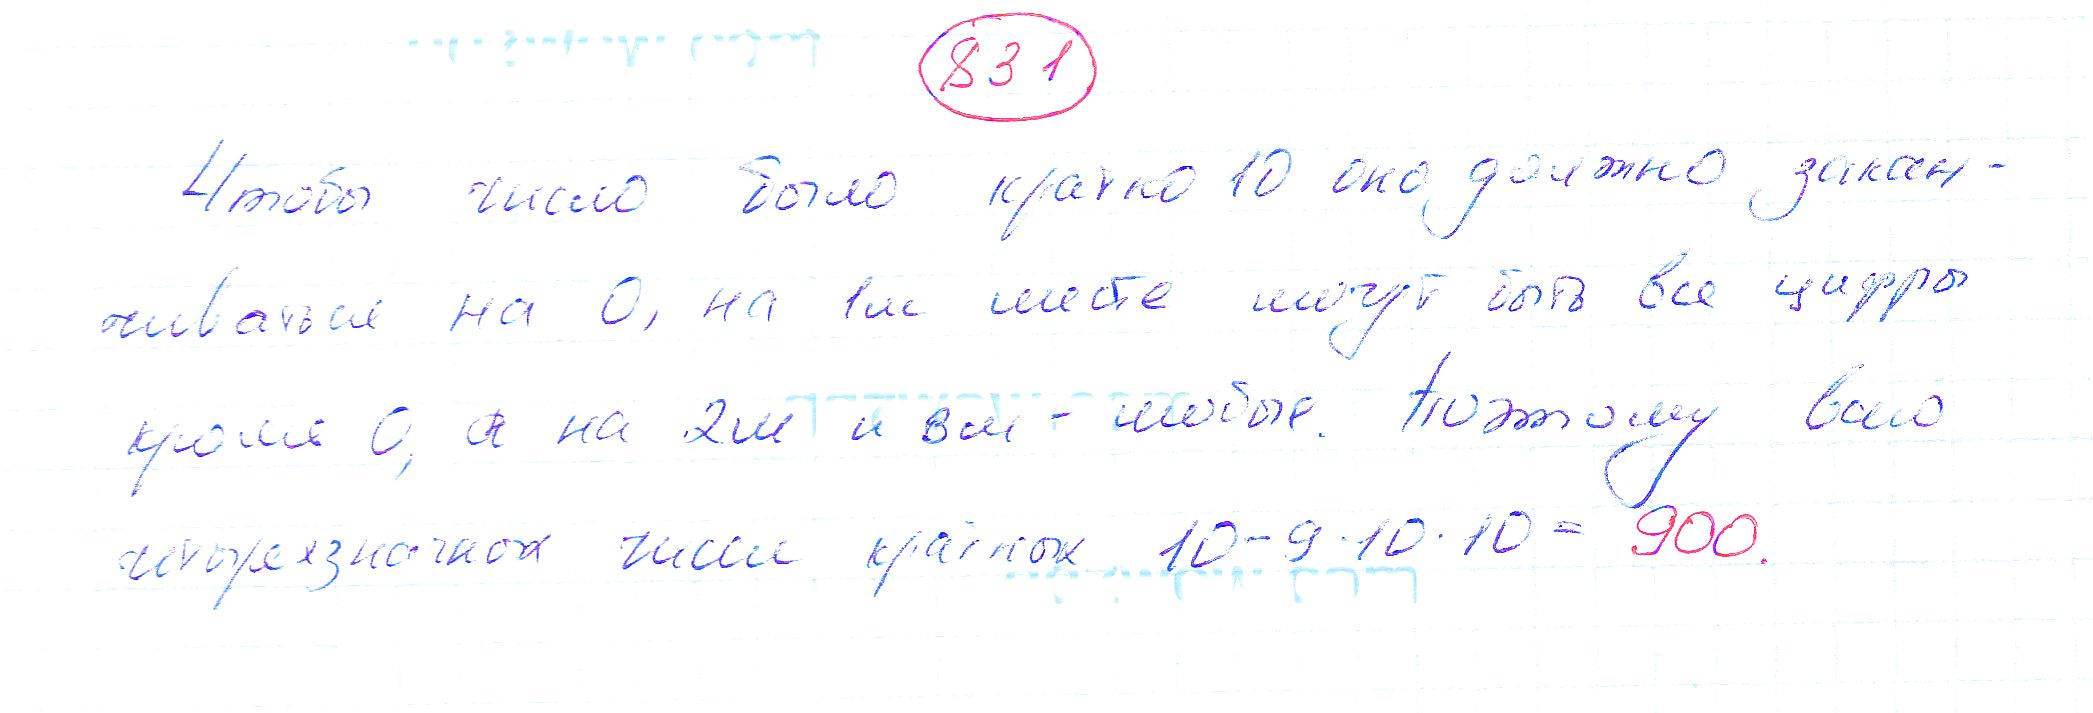 831
Чтобы число было кратно 10 оно должно закан-
чиваться на 0, на 1м месте могут быть все цифры
кроме 0, а на 2м и 3м - любые. Поэтому всего
четырехзначных чисел кратных 10 - 9·10·10 = 900.